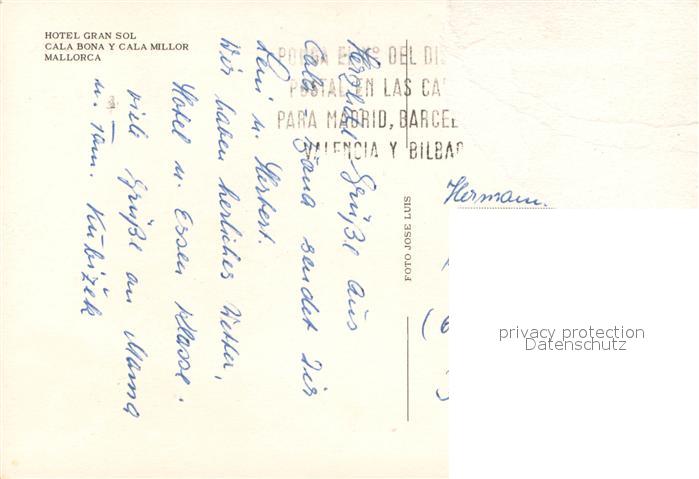 HOTEL GRAN SOL
CALA BONA Y CALA MILLOR
MALLORCA
PONGA EL Nº DEL DIS
POSTAL EN LAS CA
PARA MADRID, BARCEL
VALENCIA Y BILBAO
Herzliche Grüße aus
Cala Bona sendet Dir
Leni u. Herbert.
Wir haben herliches Wetter,
Hotel u. Essen Klasse.
viele Grüße an Mama
u. Fam. Kubizek
FOTO JOSE LUIS
Hermann.
(6
privacy protection
Datenschutz